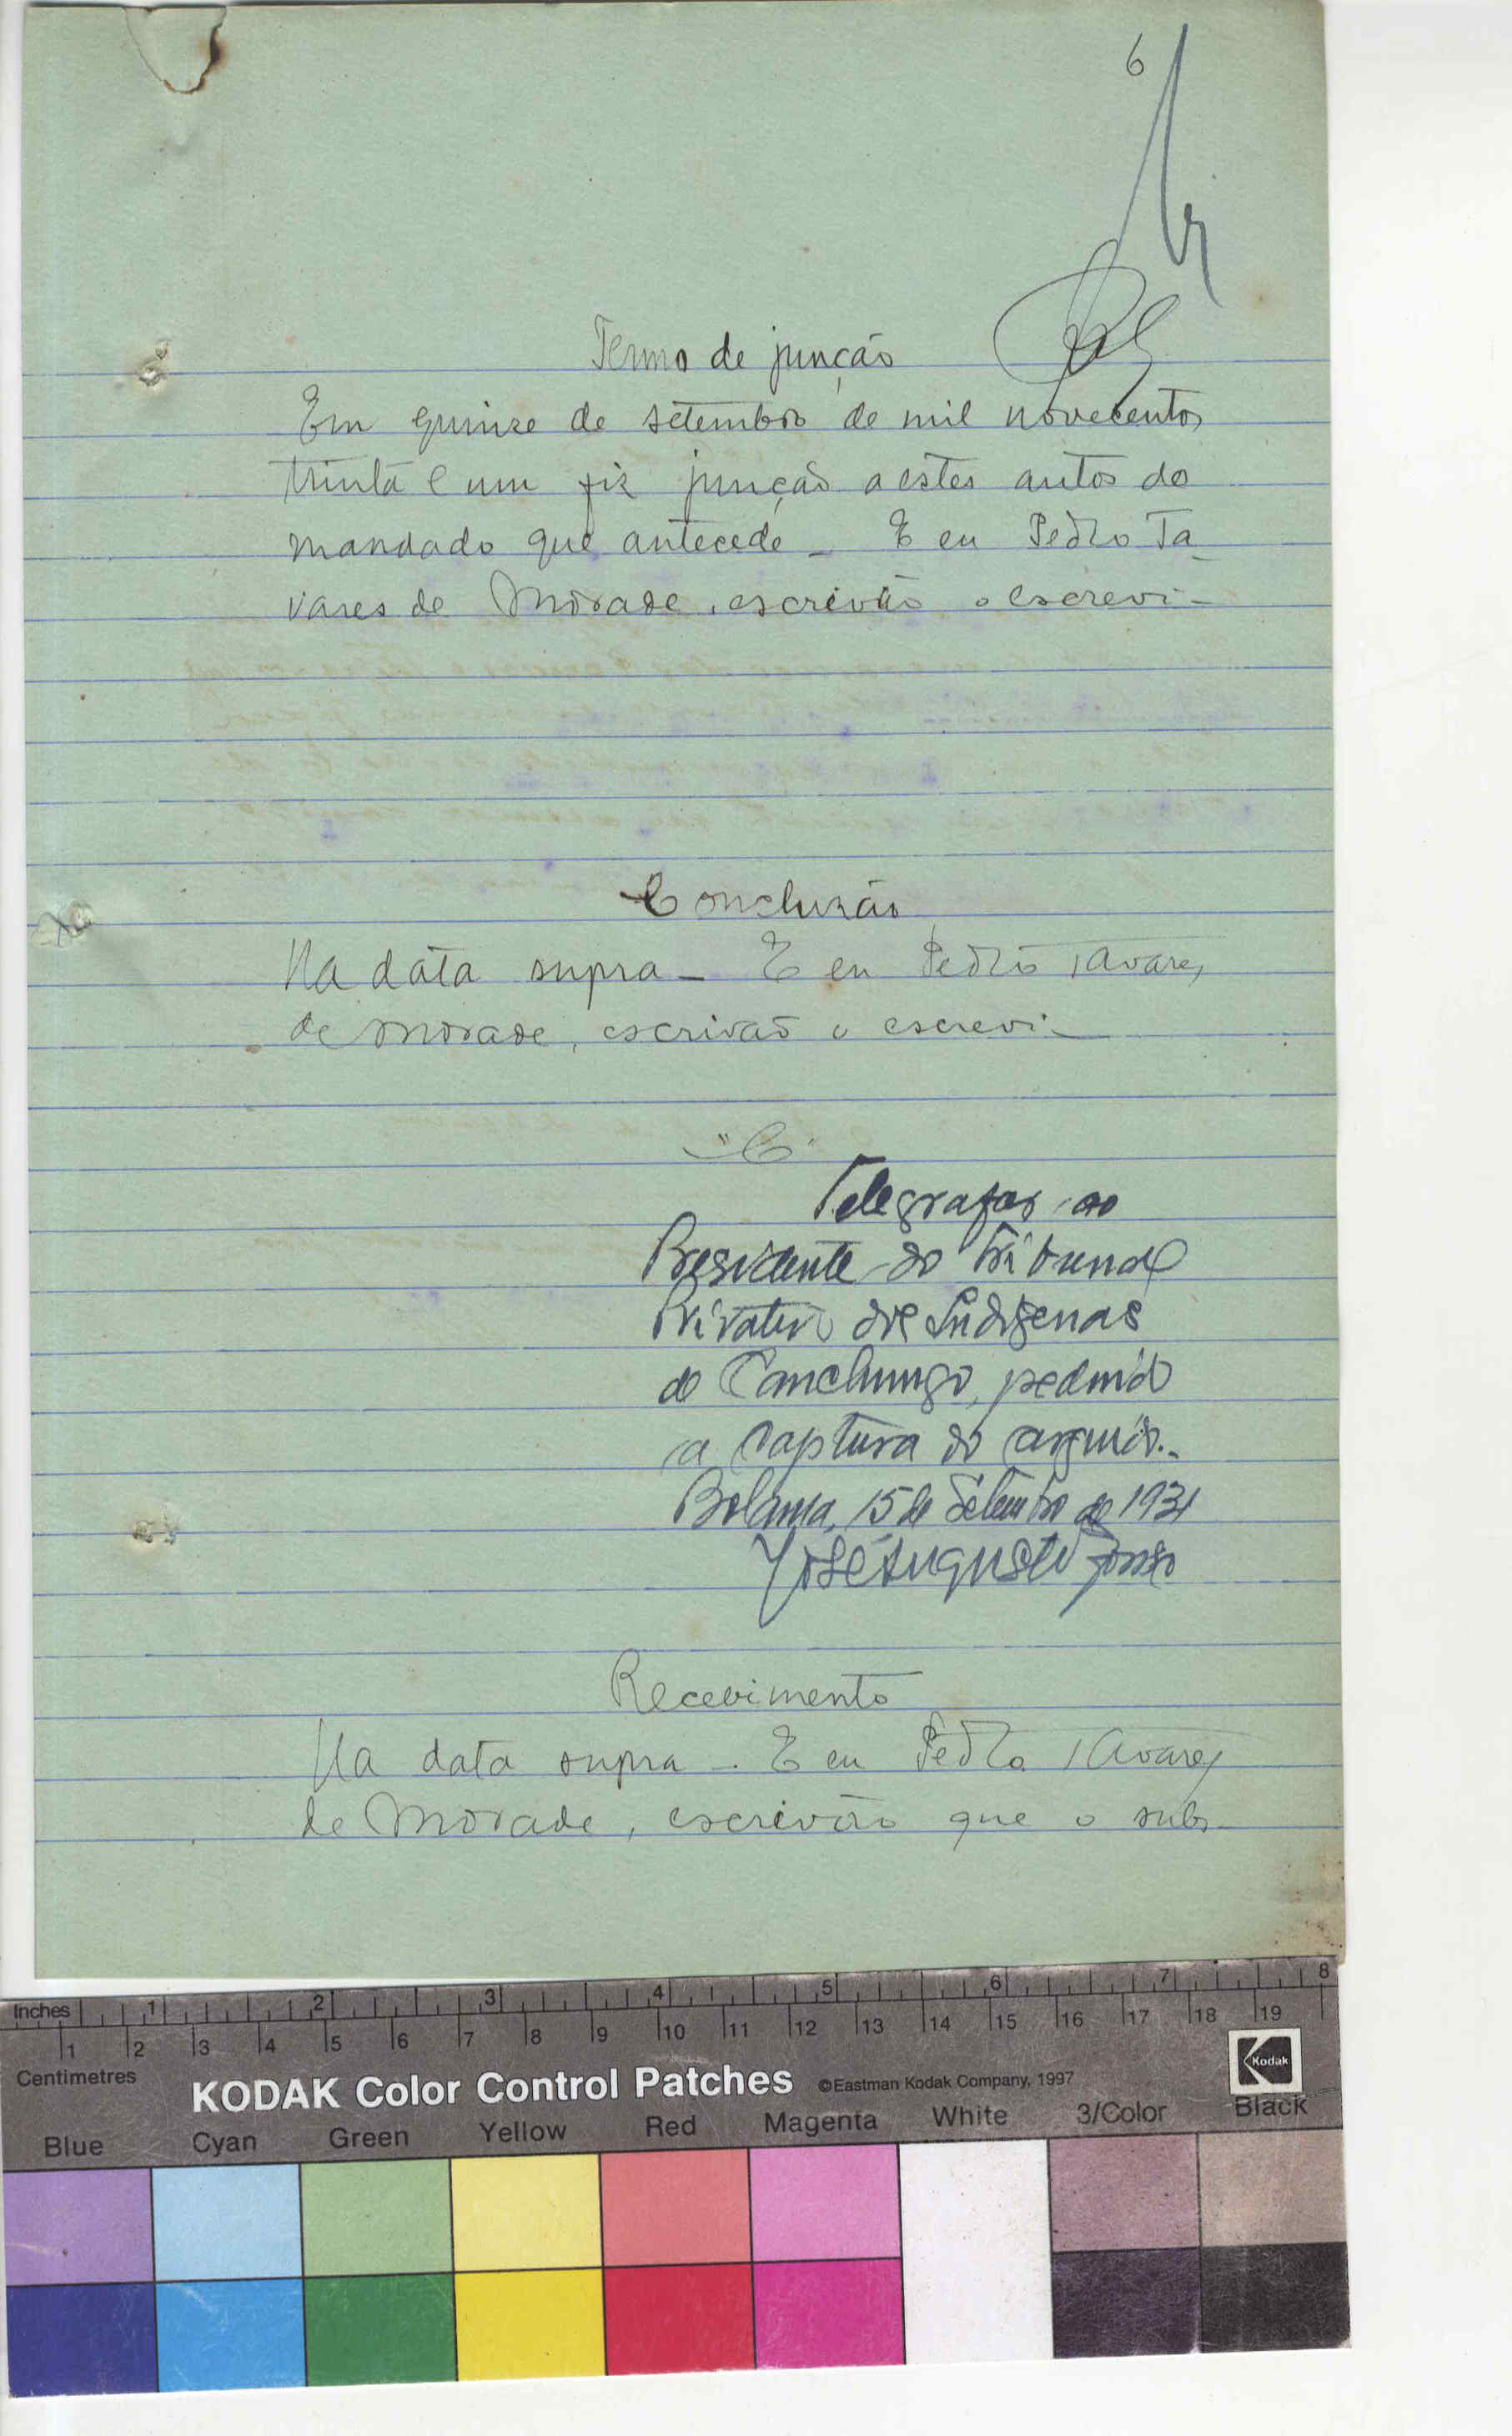 6
Termo de junção
Em quinze de setembro de mil novecentos
trinta e um fiz junção a estes autos do
mandado que antecede _ E eu Pedro Ta_
vares de Morade, escrivão o escrevi_
Concluzão
Na data supra _ E eu Pedro Tavares
de Morade, escrivão o escrevi_
"C"
Telegrafar ao
Presidente do Tribunal
Privativo dos Indigenas
de Canchungo, pedindo
a captura do arguido._
Bolama, 15 de Setembro de 1931
José Augusto
Recevimento
Na data supra _. E eu Pedro Tavares
de Morade, escrivão que o subs_
Inches 1 2 3 4 5 6 7 8
1 2 3 4 5 6 7 8 9 10 11 12 13 14 15 16 17 18 19
Centimetres
KODAK Color Control Patches ©Eastman Kodak Company, 1997 Kodak
Blue Cyan Green Yellow Red Magenta White 3/Color Black